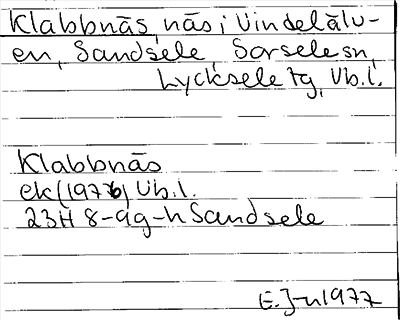 Klabbnäs, näs i Vindelälv-
en, Sandsele, Sorsele sn,
Lycksele tg, Vb.l.
Klabbnäs
ek (1976) Vb.l.
23H 8-9g-h Sandsele
E.J-n 1977